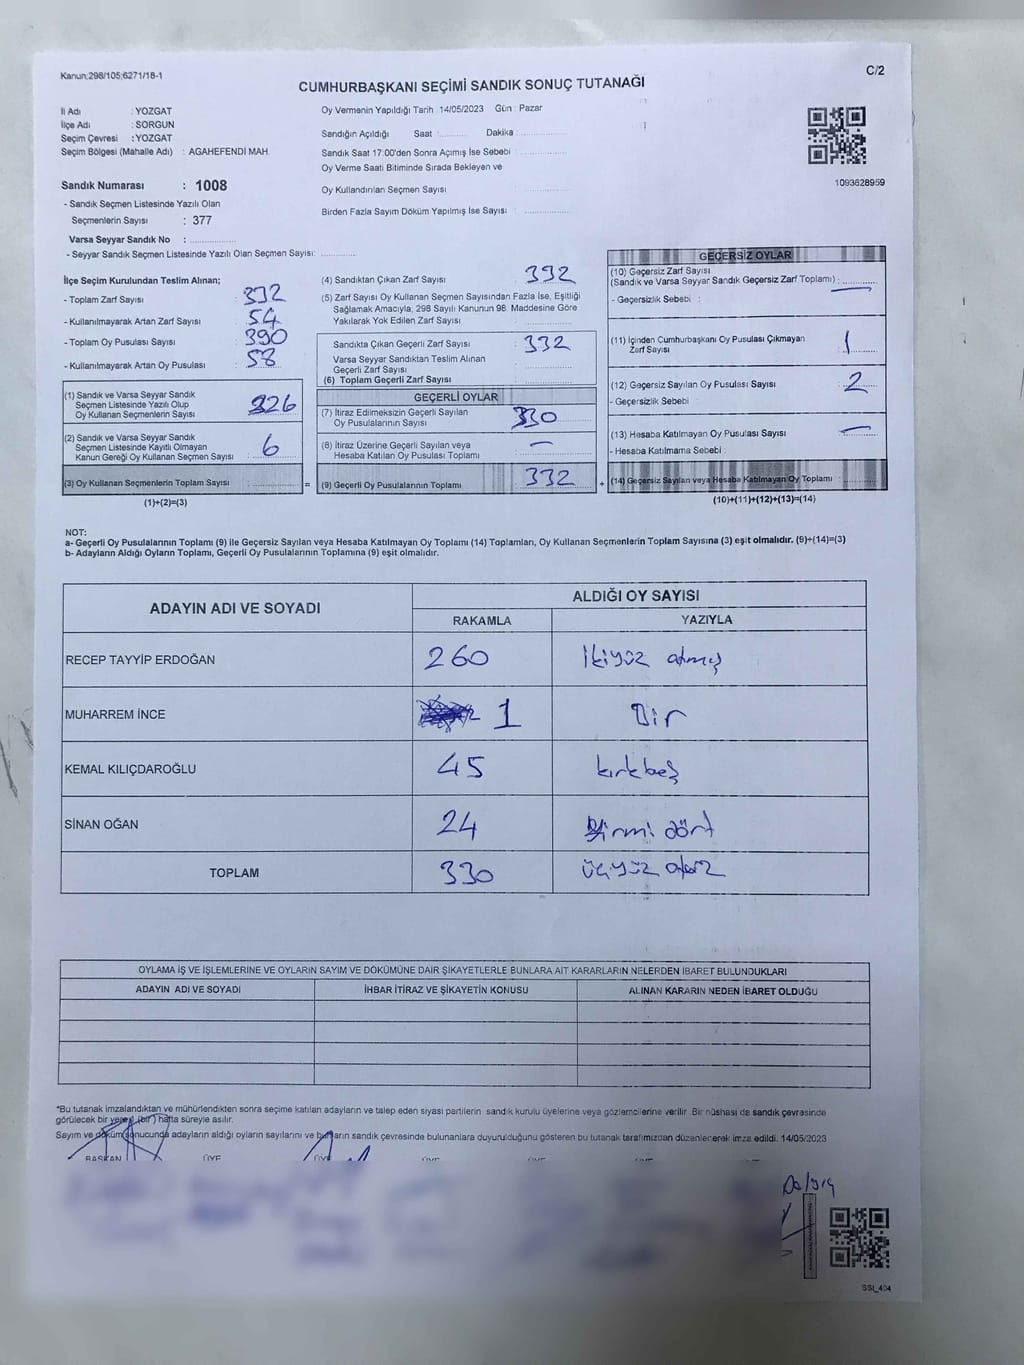 Kanun:298/105;6271/18-1
C/2
CUMHURBAŞKANI SEÇİMİ SANDIK SONUÇ TUTANAĞI
İl Adı : YOZGAT
İlçe Adı : SORGUN
Seçim Çevresi : YOZGAT
Seçim Bölgesi (Mahalle Adı) : AGAHEFENDİ MAH.
Oy Vermenin Yapıldığı Tarih : 14/05/2023 Gün : Pazar
Sandığın Açıldığı Saat : Dakika :
Sandık Saat 17:00'den Sonra Açımış İse Sebebi :
Oy Verme Saati Bitiminde Sırada Bekleyen ve
Oy Kullandırılan Seçmen Sayısı :
Birden Fazla Sayım Döküm Yapılmış İse Sayısı :
1093628959
Sandık Numarası : 1008
- Sandık Seçmen Listesinde Yazılı Olan
Seçmenlerin Sayısı : 377
Varsa Seyyar Sandık No :
- Seyyar Sandık Seçmen Listesinde Yazılı Olan Seçmen Sayısı:
İlçe Seçim Kurulundan Teslim Alınan;
- Toplam Zarf Sayısı : 392
- Kullanılmayarak Artan Zarf Sayısı : 54
- Toplam Oy Pusulası Sayısı : 390
- Kullanılmayarak Artan Oy Pusulası : 58
(1) Sandık ve Varsa Seyyar Sandık
Seçmen Listesinde Yazılı Olup
Oy Kullanan Seçmenlerin Sayısı 326
(2) Sandık ve Varsa Seyyar Sandık
Seçmen Listesinde Kayıtlı Olmayan
Kanun Gereği Oy Kullanan Seçmen Sayısı 6
(3) Oy Kullanan Seçmenlerin Toplam Sayısı :
(1)+(2)=(3)
(4) Sandıktan Çıkan Zarf Sayısı : 332
(5) Zarf Sayısı Oy Kullanan Seçmen Sayısından Fazla İse, Eşitliği
Sağlamak Amacıyla, 298 Sayılı Kanunun 98. Maddesine Göre
Yakılarak Yok Edilen Zarf Sayısı :
Sandıkta Çıkan Geçerli Zarf Sayısı : 332
Varsa Seyyar Sandıktan Teslim Alınan
Geçerli Zarf Sayısı :
(6) Toplam Geçerli Zarf Sayısı :
GEÇERLİ OYLAR
(7) İtiraz Edilmeksizin Geçerli Sayılan
Oy Pusulalarının Sayısı 330
(8) İtiraz Üzerine Geçerli Sayılan veya
Hesaba Katılan Oy Pusulası Toplamı : —
(9) Geçerli Oy Pusulalarının Toplamı : 332
=
+
GEÇERSİZ OYLAR
(10) Geçersiz Zarf Sayısı
(Sandık ve Varsa Seyyar Sandık Geçersiz Zarf Toplamı) : —
- Geçersizlik Sebebi :
(11) İçinden Cumhurbaşkanı Oy Pusulası Çıkmayan
Zarf Sayısı : 1
(12) Geçersiz Sayılan Oy Pusulası Sayısı : 2
- Geçersizlik Sebebi :
(13) Hesaba Katılmayan Oy Pusulası Sayısı : —
- Hesaba Katılmama Sebebi :
(14) Geçersiz Sayılan veya Hesaba Katılmayan Oy Toplamı :
(10)+(11)+(12)+(13)=(14)
NOT:
a- Geçerli Oy Pusulalarının Toplamı (9) ile Geçersiz Sayılan veya Hesaba Katılmayan Oy Toplamı (14) Toplamları, Oy Kullanan Seçmenlerin Toplam Sayısına (3) eşit olmalıdır. (9)+(14)=(3)
b- Adayların Aldığı Oyların Toplamı, Geçerli Oy Pusulalarının Toplamına (9) eşit olmalıdır.
ADAYIN ADI VE SOYADI
ALDIĞI OY SAYISI
RAKAMLA YAZIYLA
RECEP TAYYİP ERDOĞAN 260 İkiyüz atmış
MUHARREM İNCE 1 Bir
KEMAL KILIÇDAROĞLU 45 kırkbeş
SİNAN OĞAN 24 Yirmi dört
TOPLAM 330 üçyüz otuz
OYLAMA İŞ VE İŞLEMLERİNE VE OYLARIN SAYIM VE DÖKÜMÜNE DAİR ŞİKAYETLERLE BUNLARA AİT KARARLARIN NELERDEN İBARET BULUNDUKLARI
ADAYIN ADI VE SOYADI İHBAR İTİRAZ VE ŞİKAYETİN KONUSU ALINAN KARARIN NEDEN İBARET OLDUĞU
*Bu tutanak imzalandıktan ve mühürlendikten sonra seçime katılan adayların ve talep eden siyasi partilerin sandık kurulu üyelerine veya gözlemcilerine verilir. Bir nüshası de sandık çevresinde
görülecek bir yere 1 (bir) hafta süreyle asılır.
Sayım ve döküm sonucunda adayların aldığı oyların sayılarını ve bunların sandık çevresinde bulunanlara duyurulduğunu gösteren bu tutanak tarafımızdan düzenlenerek imza edildi. 14/05/2023
BAŞKAN ÜYE ÜYE ÜYE ÜYE ÜYE
SSI_404